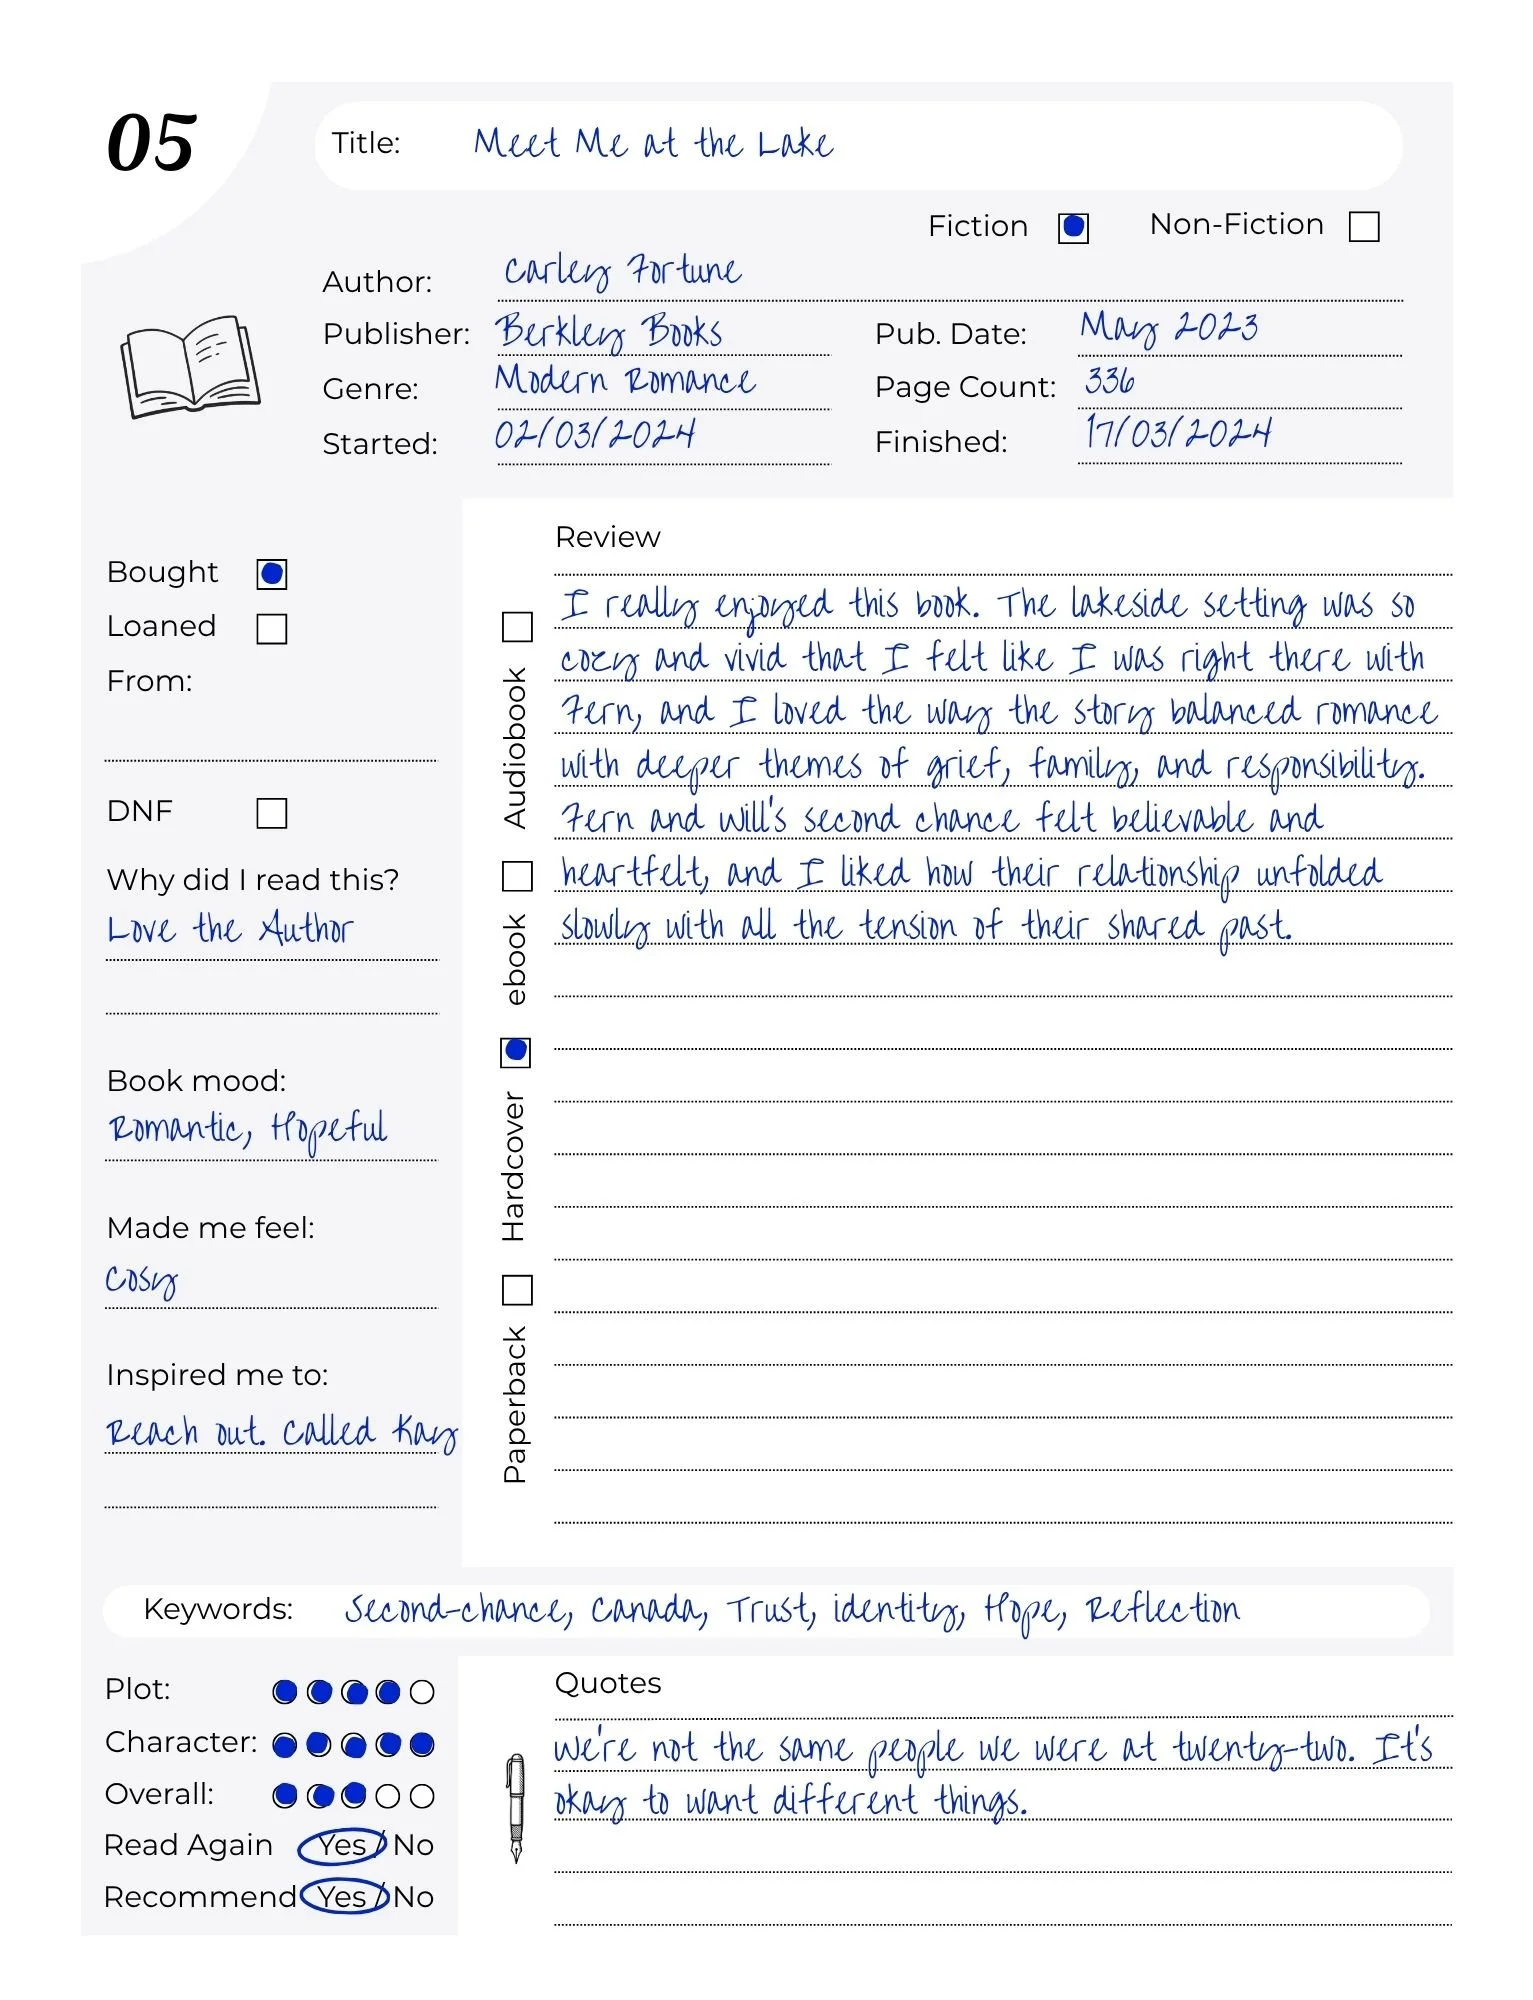 05
Title: Meet Me at the Lake
Fiction Non-Fiction
Author: Carley Fortune
Publisher: Berkley Books Pub. Date: May 2023
Genre: Modern Romance Page Count: 336
Started: 02/03/2024 Finished: 17/03/2024
Bought
Loaned
From:
DNF
Why did I read this?
Love the Author
Book mood:
Romantic, Hopeful
Made me feel:
Cosy
Inspired me to:
Reach out. Called Kay
Audiobook
ebook
Hardcover
Paperback
Review
I really enjoyed this book. The lakeside setting was so
cozy and vivid that I felt like I was right there with
Fern, and I loved the way the story balanced romance
with deeper themes of grief, family, and responsibility.
Fern and Will's second chance felt believable and
heartfelt, and I liked how their relationship unfolded
slowly with all the tension of their shared past.
Keywords: Second-chance, Canada, Trust, identity, Hope, Reflection
Plot:
Character:
Overall:
Read Again Yes / No
Recommend Yes / No
Quotes
We're not the same people we were at twenty-two. It's
okay to want different things.